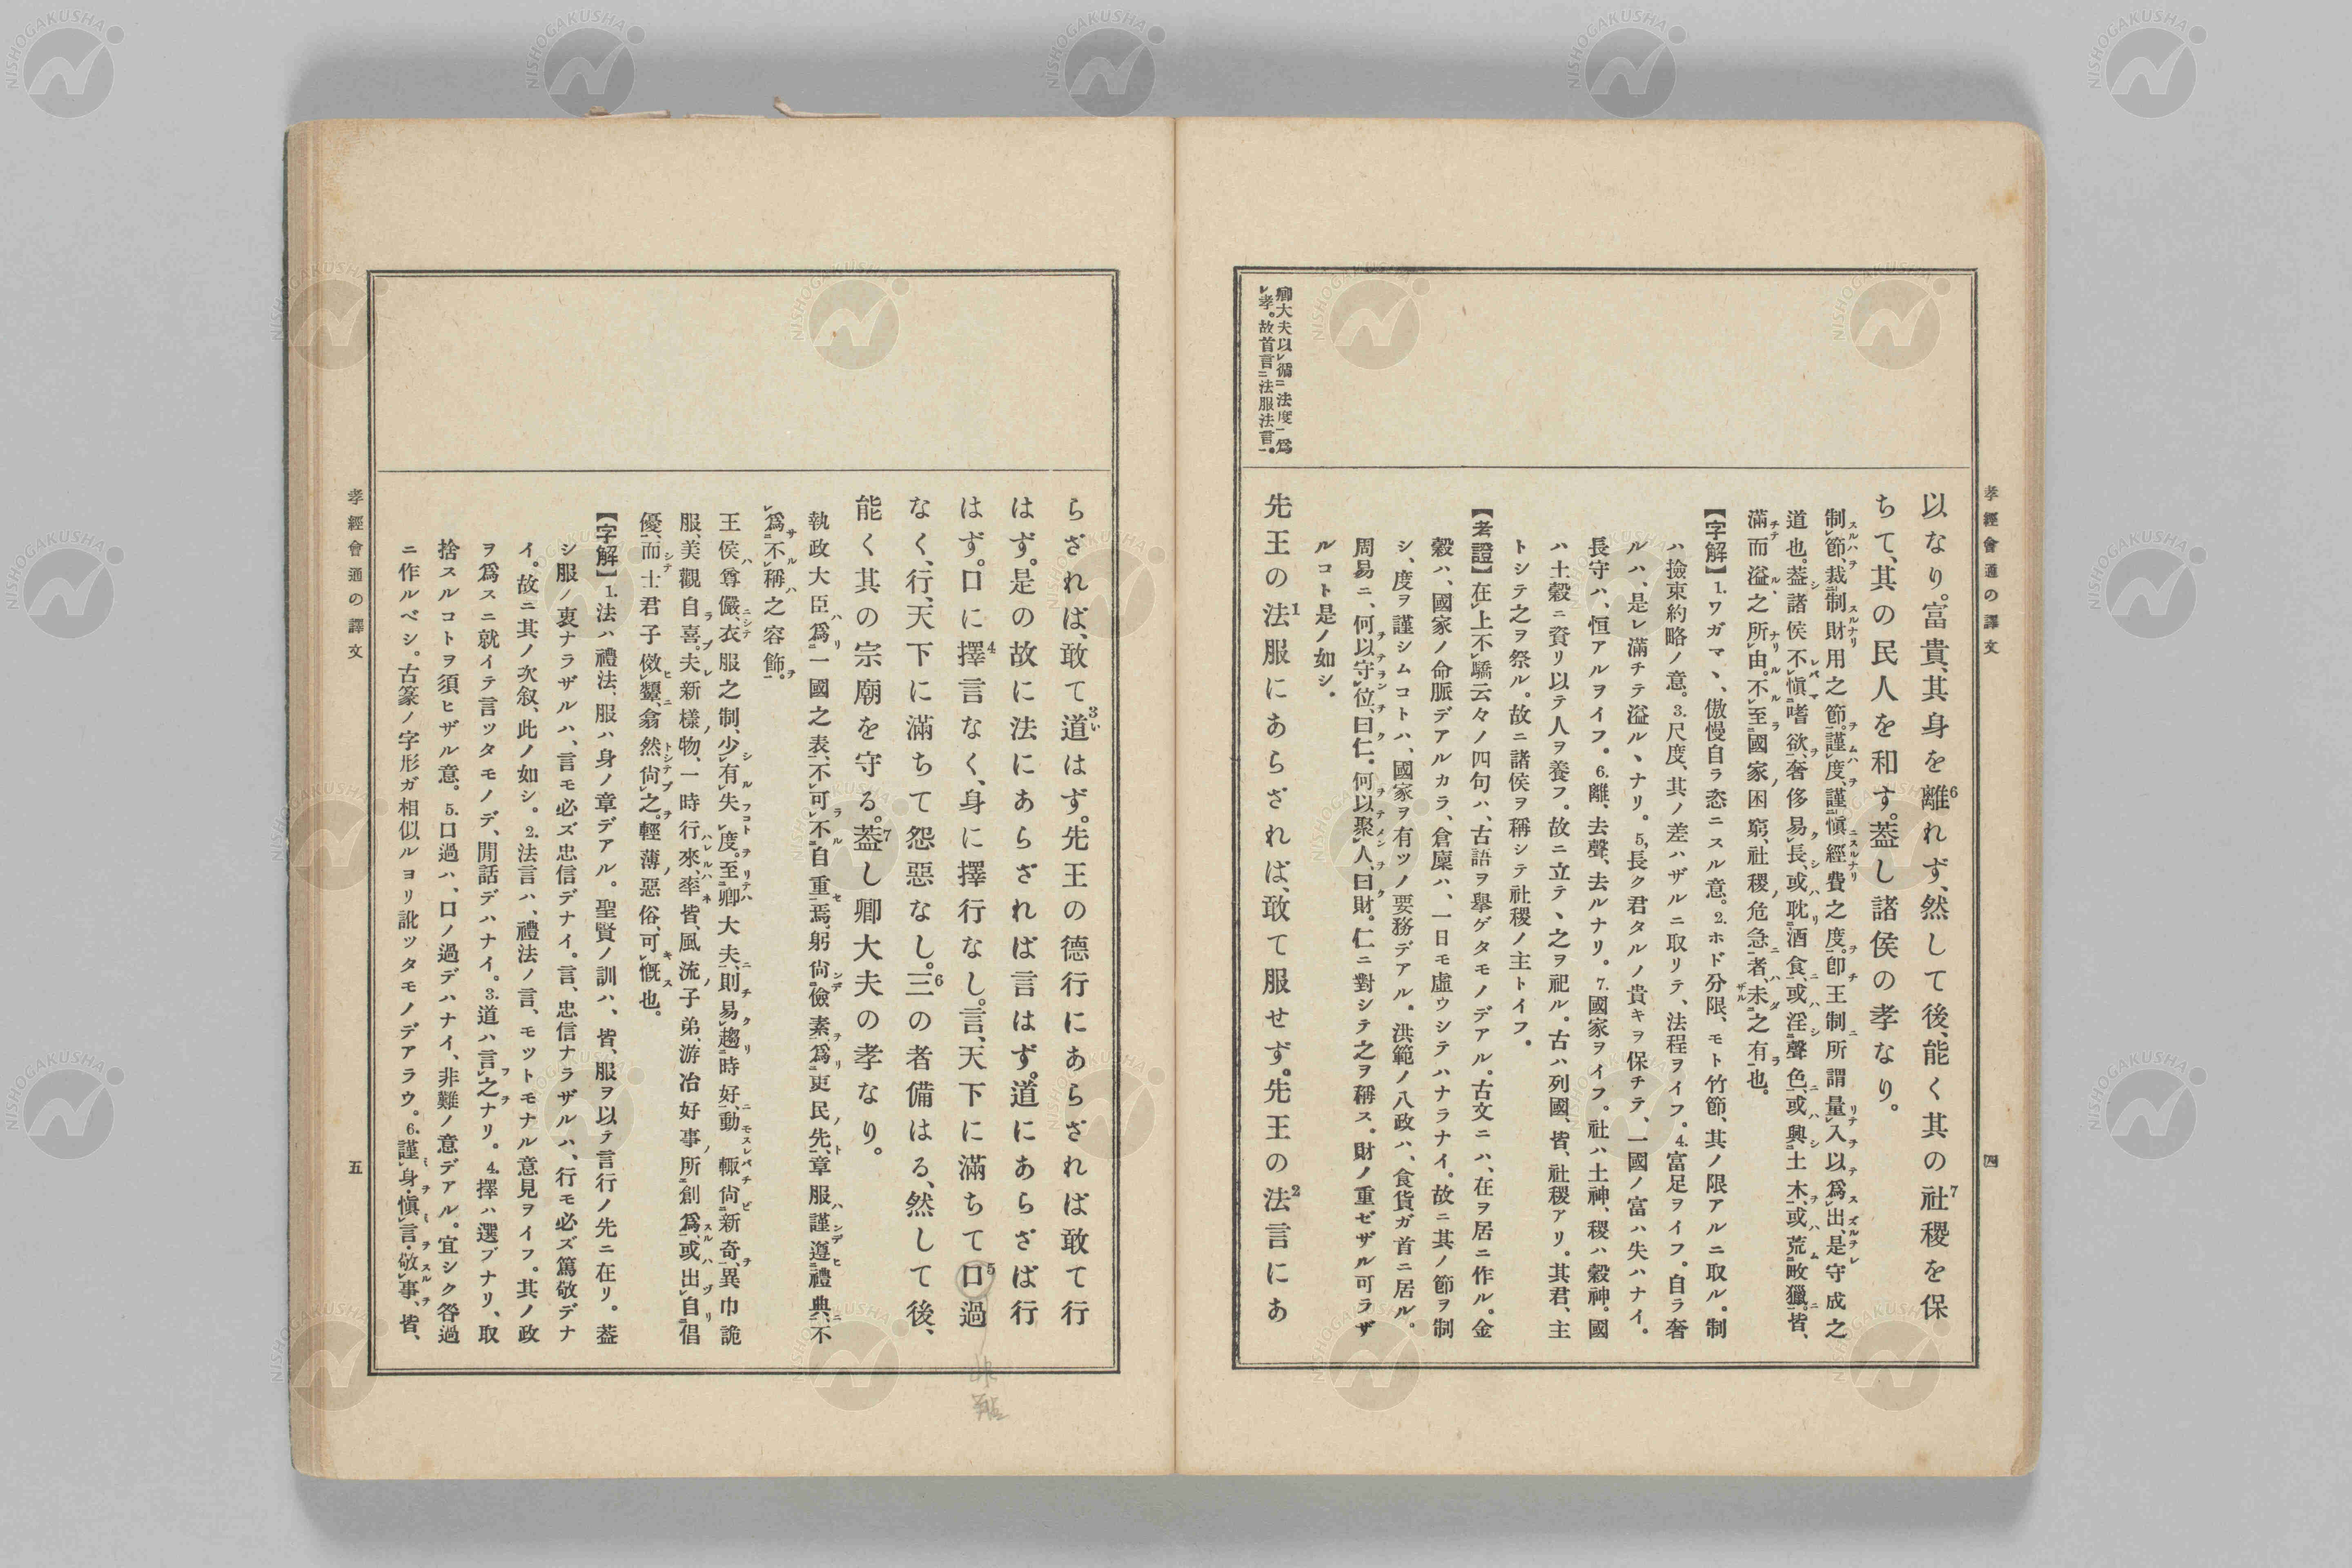 孝經會通の譯文
四
卿大夫以㆑循㆓法度㆒爲
㆑孝。故首言㆓法服法言㆒。
以なり。富貴、其身を離れず、然して後、能く其の社稷を保
ちて、其の民人を和す。蓋し諸侯の孝なり。
制㆑節、裁㆓制財用之節㆒。謹㆑度、謹㆓愼經費之度㆒。卽王制所謂量㆑入以爲㆑出、是守成之
道也。蓋諸侯不㆑愼㆓嗜欲㆒、奢侈易㆑長、或耽㆓酒食㆒、或淫㆓聲色㆒、或興㆓土木㆒、或荒㆓畋獵㆒、皆、
滿而溢之所㆑由。不㆑至㆓國家困窮、社稷危急㆒者、未㆓之有㆒也。
【字解】1.ワガマヽ、傲慢自ラ恣ニスル意。2.ホド分限、モト竹節、其ノ限アルニ取ル。制
ハ撿束約略ノ意。3.尺度、其ノ差ハザルニ取リテ、法程ヲイフ。4.富足ヲイフ。自ラ奢
ルハ、是レ滿チテ溢ルヽナリ。5.長ク君タルノ貴キヲ保チテ、一國ノ富ハ失ハナイ。
長守ハ、恒アルヲイフ。6.離、去聲、去ルナリ。7.國家ヲイフ。社ハ土神、稷ハ穀神。國
ハ土穀ニ資リ以テ人ヲ養フ。故ニ立テヽ之ヲ祀ル。古ハ列國、皆、社稷アリ。其君、主
トシテ之ヲ祭ル。故ニ諸侯ヲ稱シテ社稷ノ主トイフ。
【考證】在㆑上不㆑驕云々ノ四句ハ、古語ヲ擧ゲタモノデアル。古文ニハ、在ヲ居ニ作ル。金
穀ハ、國家ノ命脈デアルカラ、倉廩ハ、一日モ虛ウシテハナラナイ。故ニ其ノ節ヲ制
シ、度ヲ謹シムコトハ、國家ヲ有ツノ要務デアル。洪範ノ八政ハ、食貨ガ首ニ居ル。
周易ニ、何以守㆑位、曰仁。何以聚㆑人、曰財。仁ニ對シテ之ヲ稱ス。財ノ重ゼザル可ラザ
ルコト是ノ如シ。
先王の法服にあらざれば、敢て服せず。先王の法言にあ
らざれば、敢て道はず。先王の德行にあらざれば敢て行
はず。是の故に法にあらざれば言はず。道にあらざば行
はず。口に擇言なく、身に擇行なし。言、天下に滿ちて口過
なく、行、天下に滿ちて怨惡なし。三の者備はる、然して後、
能く其の宗廟を守る。蓋し卿大夫の孝なり。
執政大臣、爲㆓一國之表㆒、不㆑可㆑不㆓自重㆒焉。躬尙㆓儉素㆒、爲㆓吏民先㆒、章服謹遵㆓禮典㆒、不
㆑爲㆓不㆑稱之容飾㆒。
王侯尊儼、衣服之制、少㆑有㆑失㆑度。至㆓卿大夫㆒、則易㆑趨㆓時好㆒、動輒尙㆓新奇㆒、異巾詭
服、美觀自喜。夫新樣物、一時行來、率皆、風流子弟、游冶好事所㆓創爲㆒、或出㆓自倡
優㆒、而士君子傚㆑顰、翕然尙㆑之。輕薄惡俗、可㆑慨也。
【字解】1.法ハ禮法、服ハ身ノ章デアル。聖賢ノ訓ハ、皆、服ヲ以テ言行ノ先ニ在リ。蓋
シ服ノ衷ナラザルハ、言モ必ズ忠信デナイ。言、忠信ナラザルハ、行モ必ズ篤敬デナ
イ。故ニ其ノ次叙、此ノ如シ。2.法言ハ、禮法ノ言、モツトモナル意見ヲイフ。其ノ政
ヲ爲スニ就イテ言ツタモノデ、閒話デハナイ。3.道ハ言㆑之ナリ。4.擇ハ選ブナリ、取
捨スルコトヲ須ヒザル意。5.口過ハ、口ノ過デハナイ、非難ノ意デアル。宜シク咎過
ニ作ルベシ。古篆ノ字形ガ相似ルヨリ訛ツタモノデアラウ。6.謹㆑身・愼㆑言・敬㆑事、皆、
孝經會通の譯文
五